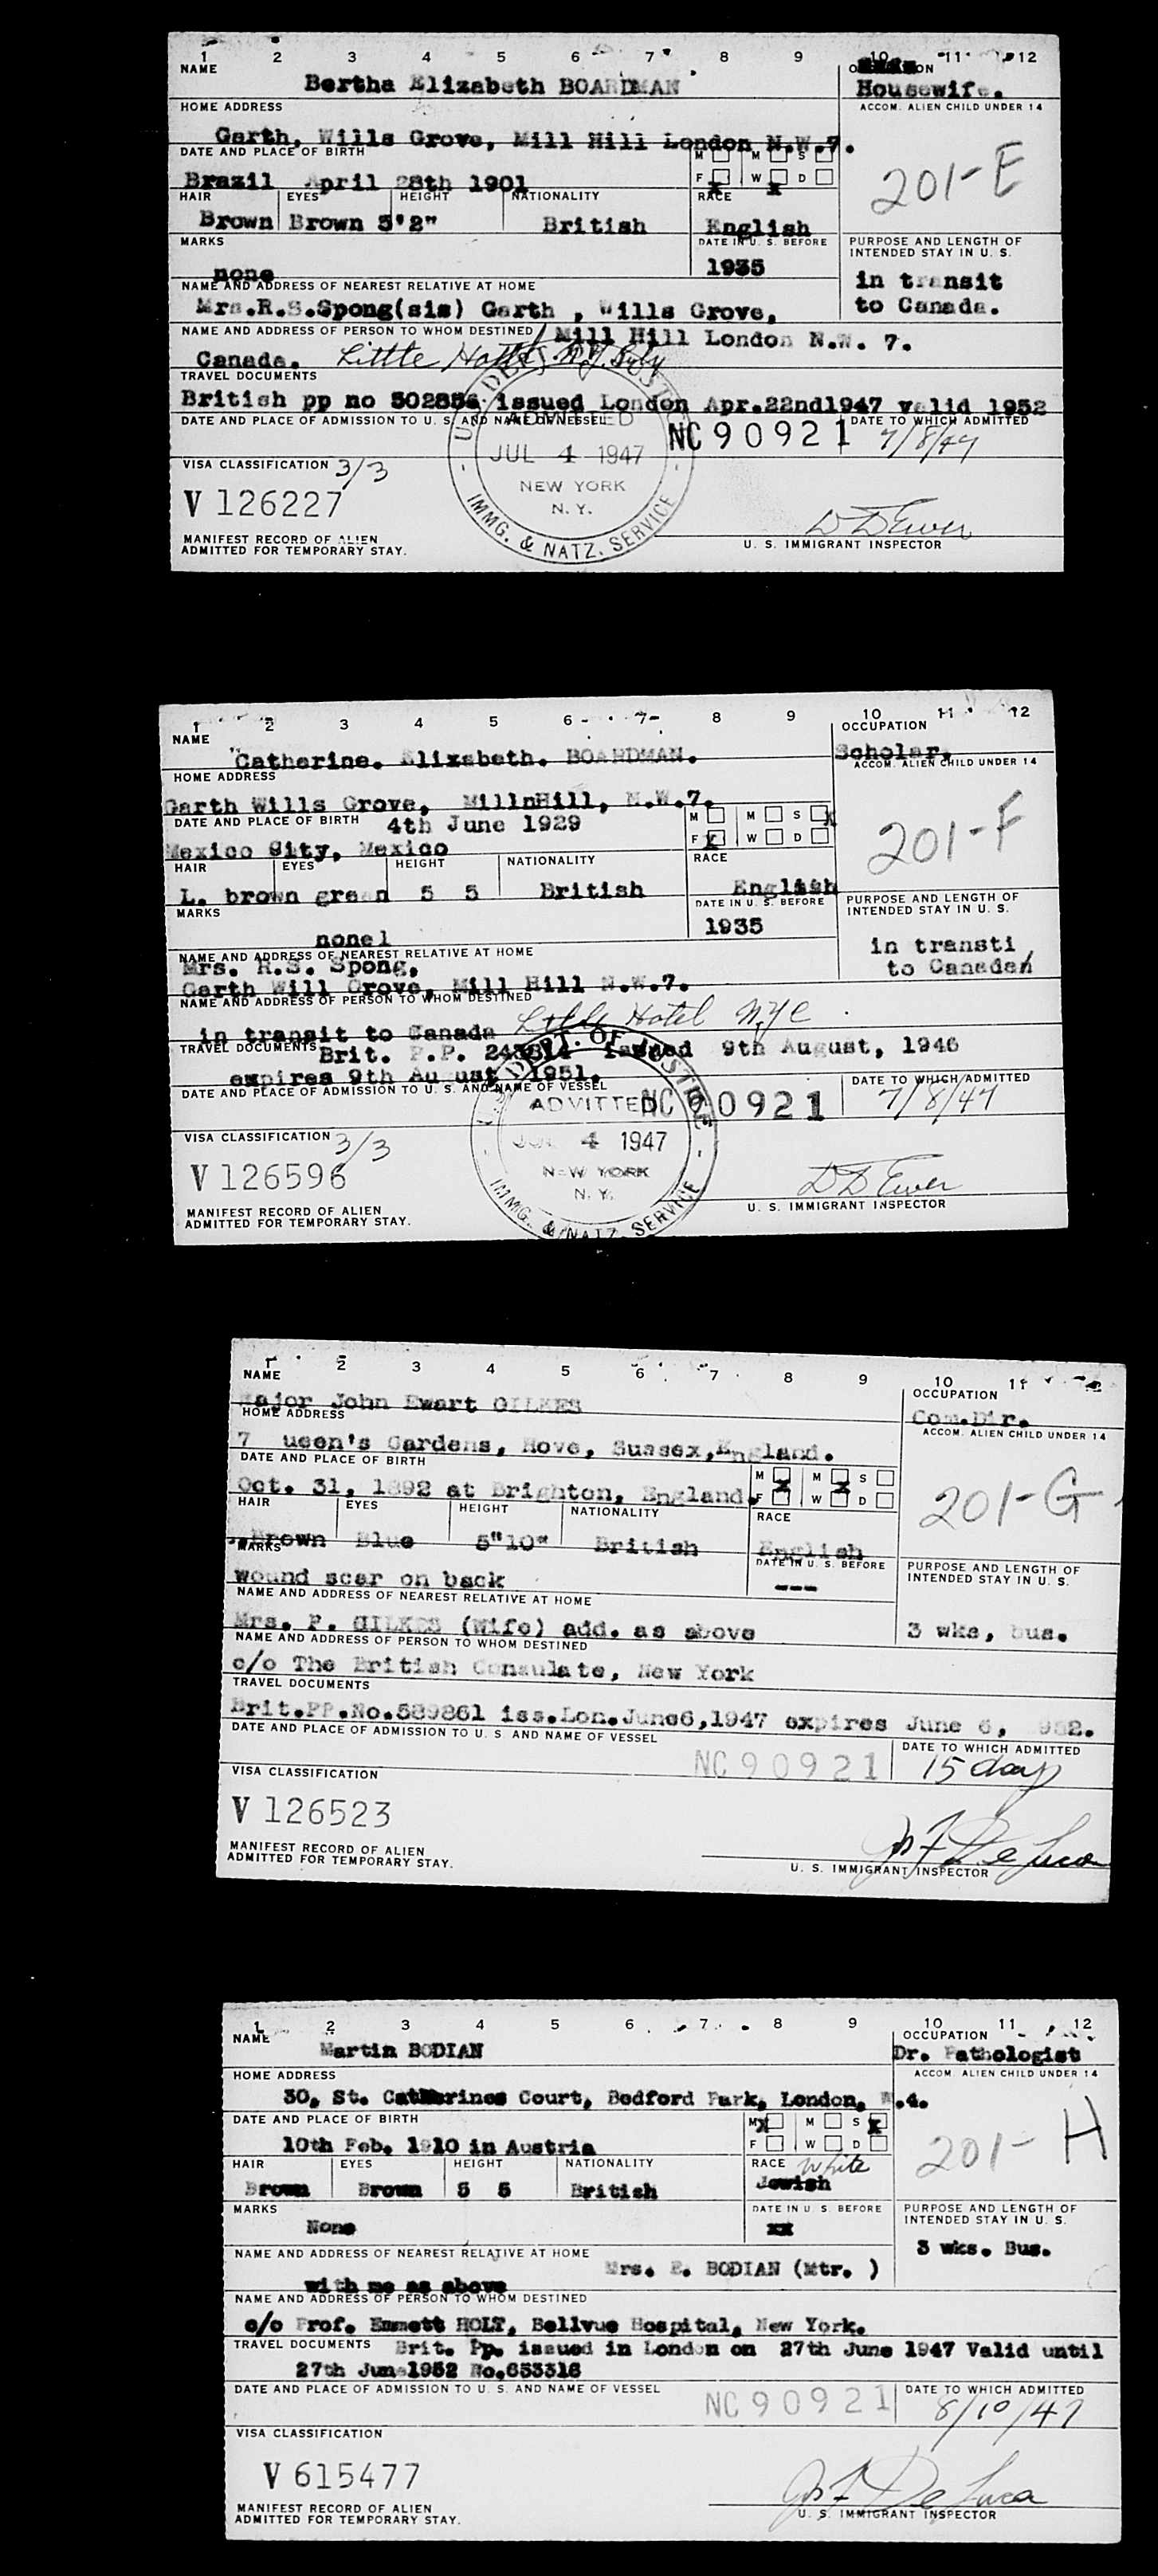 1 2 3 4 5 6 7 8 9 10 11 12
NAME
Bertha Elizabeth BOARDMAN
Housewife.
HOME ADDRESS
ACCOM. ALIEN CHILD UNDER 14
Garth, Wills Grove, Mill Hill London N.W.7.
201-E
DATE AND PLACE OF BIRTH
M M S
F W D
Brazil April 28th 1901
X X
HAIR EYES HEIGHT NATIONALITY RACE
Brown Brown 5'2" British English
MARKS DATE IN U. S. BEFORE PURPOSE AND LENGTH OF INTENDED STAY IN U. S.
none 1935 in transit to Canada.
NAME AND ADDRESS OF NEAREST RELATIVE AT HOME
Mrs.R.S.Spong(sis) Garth , Wills Grove,
NAME AND ADDRESS OF PERSON TO WHOM DESTINED / Mill Hill London N.W. 7.
Canada. Little Hotel
TRAVEL DOCUMENTS
British pp no issued London Apr.22nd1947 valid 1952
DATE AND PLACE OF ADMISSION TO U. S. AND NAME OF VESSEL
NC 90921
DATE TO WHICH ADMITTED
7/8/47
ADMITTED
JUL 4 1947
NEW YORK
N. Y.
IMMG. & NATZ. SERVICE
VISA CLASSIFICATION 3/3
V 126227
D D Ewer
MANIFEST RECORD OF ALIEN
ADMITTED FOR TEMPORARY STAY.
U. S. IMMIGRANT INSPECTOR
1 2 3 4 5 6 7 8 9 10 11 12
NAME OCCUPATION
Catherine. Elizabeth. BOARDMAN. Scholar.
HOME ADDRESS
ACCOM. ALIEN CHILD UNDER 14
Garth Wills Grove, MillnHill, N.W.7.
201-F
DATE AND PLACE OF BIRTH 4th June 1929
M M S X
F X W D
Mexico City, Mexico
HAIR EYES HEIGHT NATIONALITY RACE
L. brown green 5 5 British English
MARKS DATE IN U. S. BEFORE PURPOSE AND LENGTH OF INTENDED STAY IN U. S.
none1 1935 in transti to Canada
NAME AND ADDRESS OF NEAREST RELATIVE AT HOME
Mrs. R.S. Spong,
Garth Will Grove, Mill Hill N.W.7.
NAME AND ADDRESS OF PERSON TO WHOM DESTINED
in transit to Canada Hotel NYC
TRAVEL DOCUMENTS Brit. P.P. issued 9th August, 1946
expires 9th August, 1951.
DATE AND PLACE OF ADMISSION TO U. S. AND NAME OF VESSEL
NC 90921
DATE TO WHICH ADMITTED
7/8/47
DEPT. OF JUSTICE
ADMITTED
JUL 4 1947
NEW YORK
N. Y.
IMMG. & NATZ. SERVICE
VISA CLASSIFICATION 3/3
V 126596
D D Ewer
MANIFEST RECORD OF ALIEN
ADMITTED FOR TEMPORARY STAY.
U. S. IMMIGRANT INSPECTOR
1 2 3 4 5 6 7 8 9 10 11
NAME OCCUPATION
Major John Ewart GILKES Com.Dir.
HOME ADDRESS
ACCOM. ALIEN CHILD UNDER 14
7 ueen's Gardens, Hove, Sussex,England.
201-G
DATE AND PLACE OF BIRTH
M M S
X X
F W D
Oct. 31, 1892 at Brighton, England.
HAIR EYES HEIGHT NATIONALITY RACE
Brown Blue 5"10" British English
MARKS DATE IN U. S. BEFORE PURPOSE AND LENGTH OF INTENDED STAY IN U. S.
wound scar on back ---
NAME AND ADDRESS OF NEAREST RELATIVE AT HOME
Mrs. F. GILKES (Wife) add. as above 3 wks, bus.
NAME AND ADDRESS OF PERSON TO WHOM DESTINED
c/o The British Consulate, New York
TRAVEL DOCUMENTS
Brit.PP.No.589861 iss.Lon.June6,1947 expires June 6, 952.
DATE AND PLACE OF ADMISSION TO U. S AND NAME OF VESSEL
NC 90921
DATE TO WHICH ADMITTED
15 days
VISA CLASSIFICATION
V 126523
Jos F De Luca
MANIFEST RECORD OF ALIEN
ADMITTED FOR TEMPORARY STAY.
U. S. IMMIGRANT INSPECTOR
1 2 3 4 5 6 7 8 9 10 11 12
NAME OCCUPATION
Martin BODIAN Dr. Pathologist
HOME ADDRESS
ACCOM ALIEN CHILD UNDER 14
30, St. Catherines Court, Bedford Park, London, W.4.
201-H
DATE AND PLACE OF BIRTH
M X M S X
F W D
10th Feb. 1910 in Austria
HAIR EYES HEIGHT NATIONALITY RACE White
Brown Brown 5 5 British Jewish
MARKS DATE IN U. S. BEFORE PURPOSE AND LENGTH OF INTENDED STAY IN U. S.
None xx 3 wks. Bus.
NAME AND ADDRESS OF NEAREST RELATIVE AT HOME Mrs. E. BODIAN (Mtr. )
with me as above
NAME AND ADDRESS OF PERSON TO WHOM DESTINED
c/o Prof. Emmett HOLT, Bellvue Hospital, New York.
TRAVEL DOCUMENTS Brit. Pp. issued in London on 27th June 1947 Valid until
27th June1952 No.653316
DATE AND PLACE OF ADMISSION TO U. S. AND NAME OF VESSEL
NC 90921
DATE TO WHICH ADMITTED
8/10/47
VISA CLASSIFICATION
V 615477
Jos F De Luca
MANIFEST RECORD OF ALIEN
ADMITTED FOR TEMPORARY STAY.
U. S. IMMIGRANT INSPECTOR